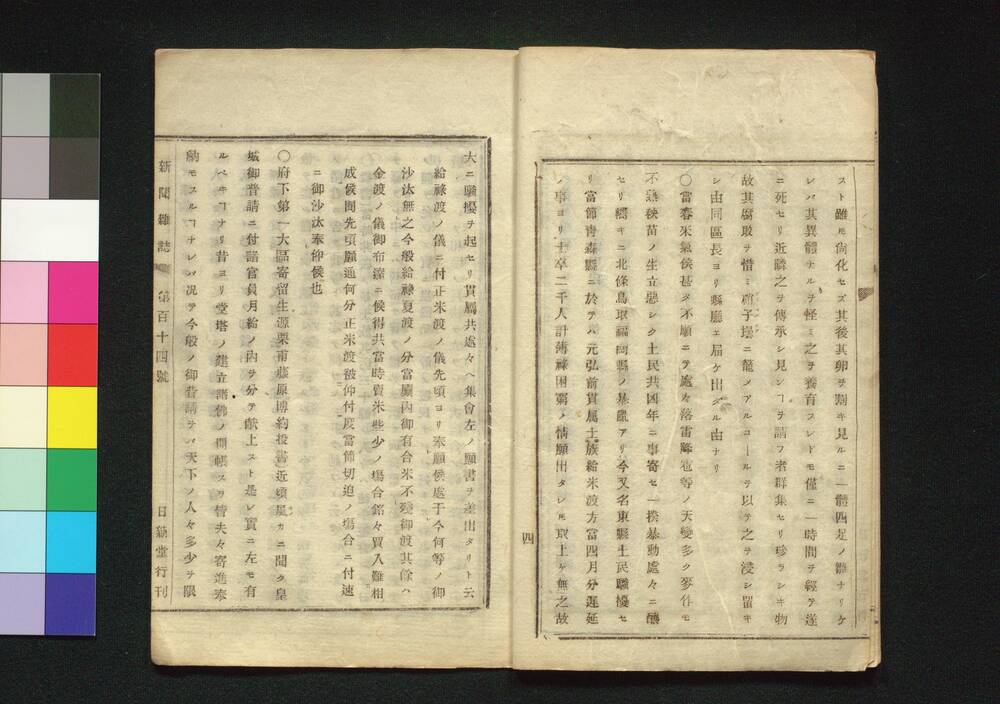 スト雖モ尚化セズ其後其卵ヲ割キ見ルニ一體四足ノ雛ナリケ
レバ其異體ナルヲ怪ミ之ヲ養育スレドモ僅ニ一時間ヲ經テ遂
ニ死セリ近隣之ヲ傳承シ見ンヿヲ請フ者群集セリ珍ラシキ物
故其腐敗ヲ惜ミ硝子壜ニ籠メアルコールヲ以テ之ヲ浸シ留キ
シ由同區長ヨリ縣廳ェ届ケ出タル由ナリ
〇當春來氣候甚タ不順ニテ處々落雷降雹等ノ天變多ク麥作モ
不熟秧苗ノ生立惡シク土民共凶年ニ事寄セ一揆暴動處々ニ釀
セリ嚮キニ北條鳥取福岡縣ノ暴亂アリ今又名東縣土民騷擾セ
リ當節靑森縣ニ於テハ元弘前貫属士族給米渡方當四月分遲延
ノ事ヨリ士卒二千人計薄祿困窮ノ情願出タレ𪜈取上ケ無之故
四
大ニ騷擾ヲ起セリ貫屬共處々ヘ集會左ノ願書ヲ差出タリト云
給祿渡ノ儀ニ付正米渡ノ儀先頃ヨリ奉願候處于今何等ノ御
沙汰無之今般給祿夏渡ノ分當廳内御有合米不殘御渡其餘ハ
金渡ノ儀御布達ニ候得共當時賣米些少ノ塲合銘々買入難相
成候間先頃願通何分正米渡被仰付度當節切迫ノ塲合ニ付速
ニ御沙汰奉仰候也
〇府下第一大區寄留生源栗甫藤原博約投書近頃風カニ聞ク皇
城御普請ニ付諸官員月給ノ内ヲ分テ獻上スト是レ實ニ左モ有
ルベキヿナリ昔ヨリ堂塔ノ建立諸佛ノ開帳スリ皆夫々寄進奉
納モスルヿナレバ况テ今般ノ御普請ナバ天下ノ人々多少ヲ限
新聞雜誌 第百十四號 日新堂行刊